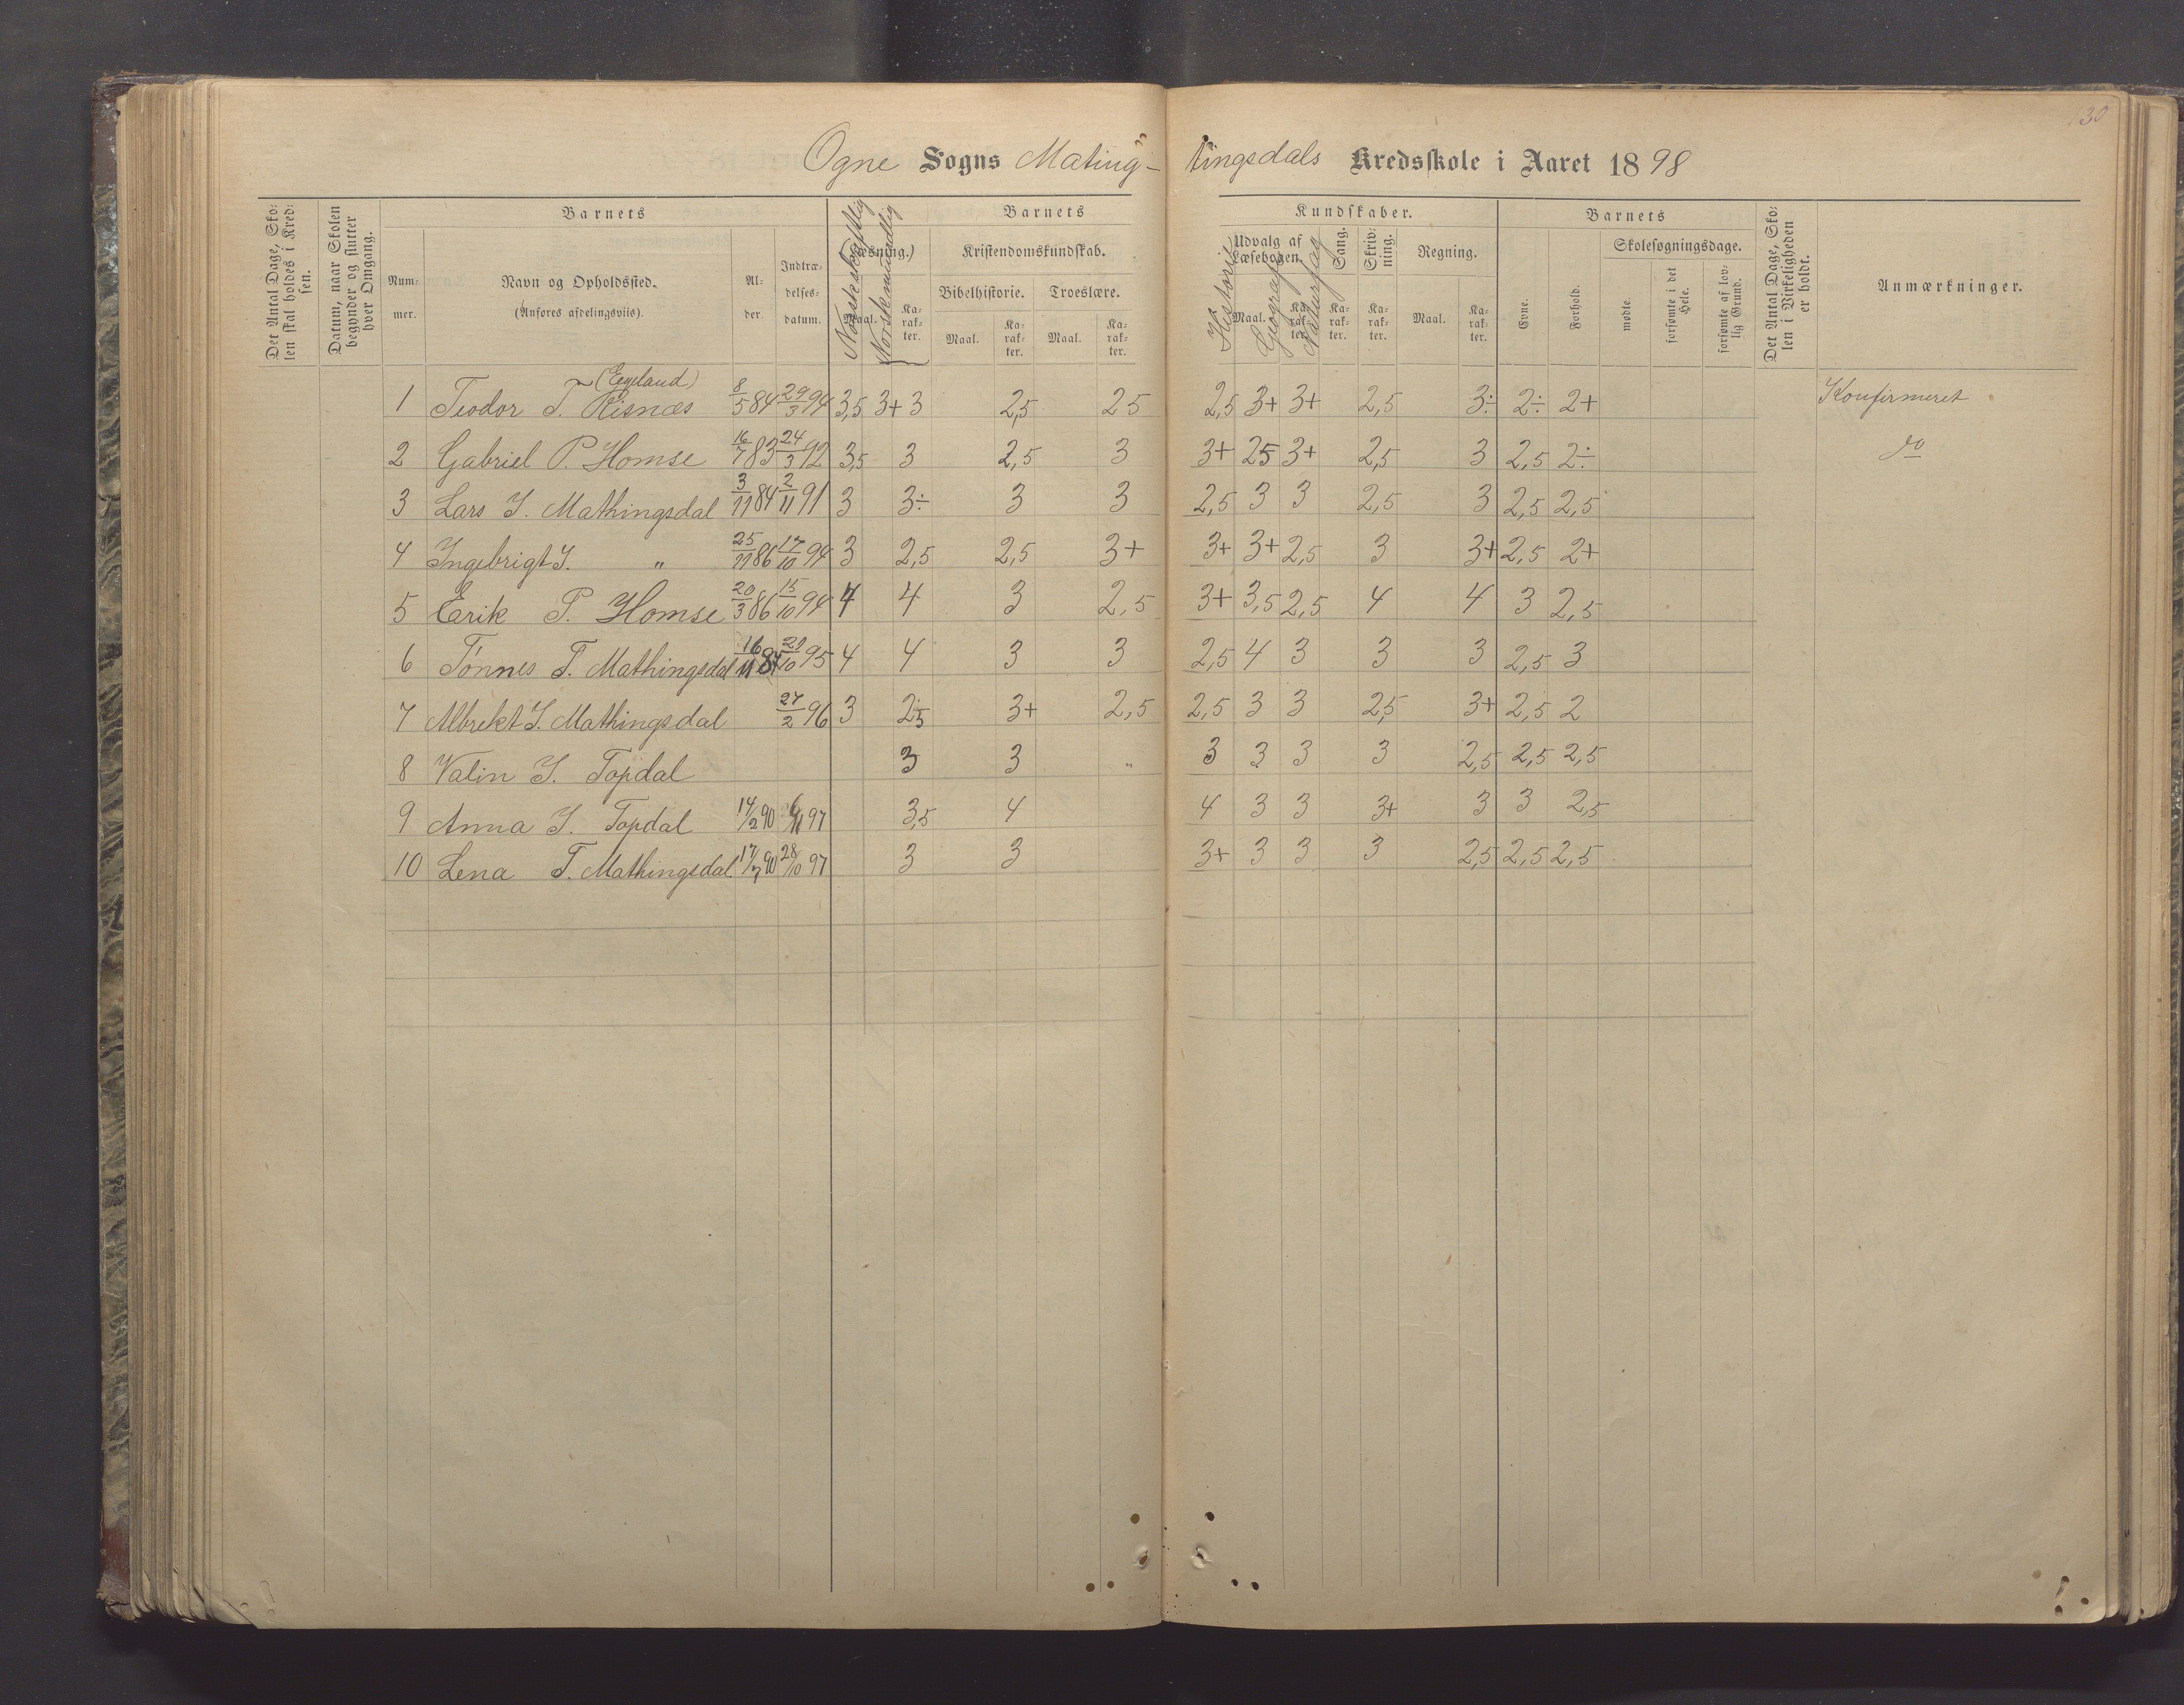 130
Ogne Sogns Mating- tingsdals Kredsskole i Aaret 1898
Det Antal Dage, Skolen skal holdes i Kredsen.
Datum, naar Skolen begynder og slutter hver Omgang.
Barnets
Nummer.
Navn og Opholdssted.
(Anføres afdelingsviis).
Alder.
Indtrædelsesdatum.
Barnets
(Læsning.)
Norsk skriftlig
Norsk mundlig
Maal.
Karakter.
Kristendomskundskab.
Bibelhistorie.
Troeslære.
Maal.
Karakter.
Maal.
Karakter.
Kundskaber.
Udvalg af Læsebogen.
Historie
Geografi
Naturfag
Maal.
Karakter.
Sang.
Karakter.
Skrivning.
Karakter.
Regning.
Maal.
Karakter.
Barnets
Evne.
Forhold.
Skolesøgningsdage.
mødte.
forsømte i det Hele.
forsømte af lovlig Grund.
Det Antal Dage, Skolen i Virkeligheden er holdt.
Anmærkninger.
(Eegeland)
1 Teodor T. Risnæs 8/5 84 29/3 94 3,5 3+ 3 2,5 25 2,5 3+ 3+ 2,5 3÷ 2÷ 2+ Konfirmeret
2 Gabriel P. Homse 16/7 83 24/3 92 3,5 3 2,5 3 3+ 25 3+ 2,5 3 2,5 2÷ do
3 Lars I. Mathingsdal 3/11 84 2/11 91 3 3÷ 3 3 2,5 3 3 2,5 3 2,5 2,5
4 Ingebrigt I. " 25/11 86 17/10 94 3 2,5 2,5 3+ 3+ 3+ 2,5 3 3+ 2,5 2+
5 Eerik P. Homse 20/3 86 15/10 94 4 4 3 2,5 3+ 3,5 2,5 4 4 3 2,5
6 Tønnes T. Mathingsdal 16/11 87 21/10 95 4 4 3 3 2,5 4 3 3 3 2,5 3
7 Albrekt I. Mathingsdal 27/2 96 3 25 3+ 2,5 2,5 3 3 2,5 3+ 2,5 2
8 Valin I. Topdal 3 3 " 3 3 3 3 2,5 2,5 2,5
9 Anna I. Topdal 14/2 90 6/11 97 3,5 4 4 3 3 3+ 3 3 2,5
10 Lena T. Mathingsdal 17/7 90 28/10 97 3 3 3+ 3 3 3 2,5 2,5 2,5